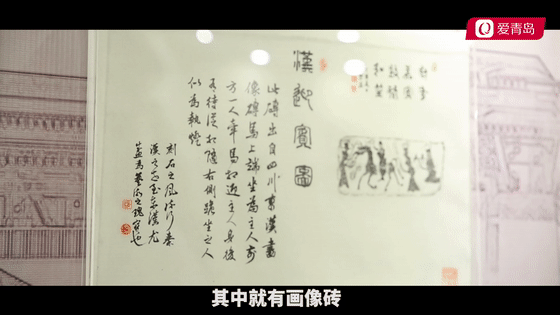 爱青岛
漢迎賓圖
此磚出自四川東漢畫
像磚馬上端坐為主人前
方一人牽馬相迎主人身後
侍從相隨右側跪坐之人
似為執燈
刻石之風流行秦
漢之至東漢尤
盛為藝術之瑰寶也
其中就有画像砖